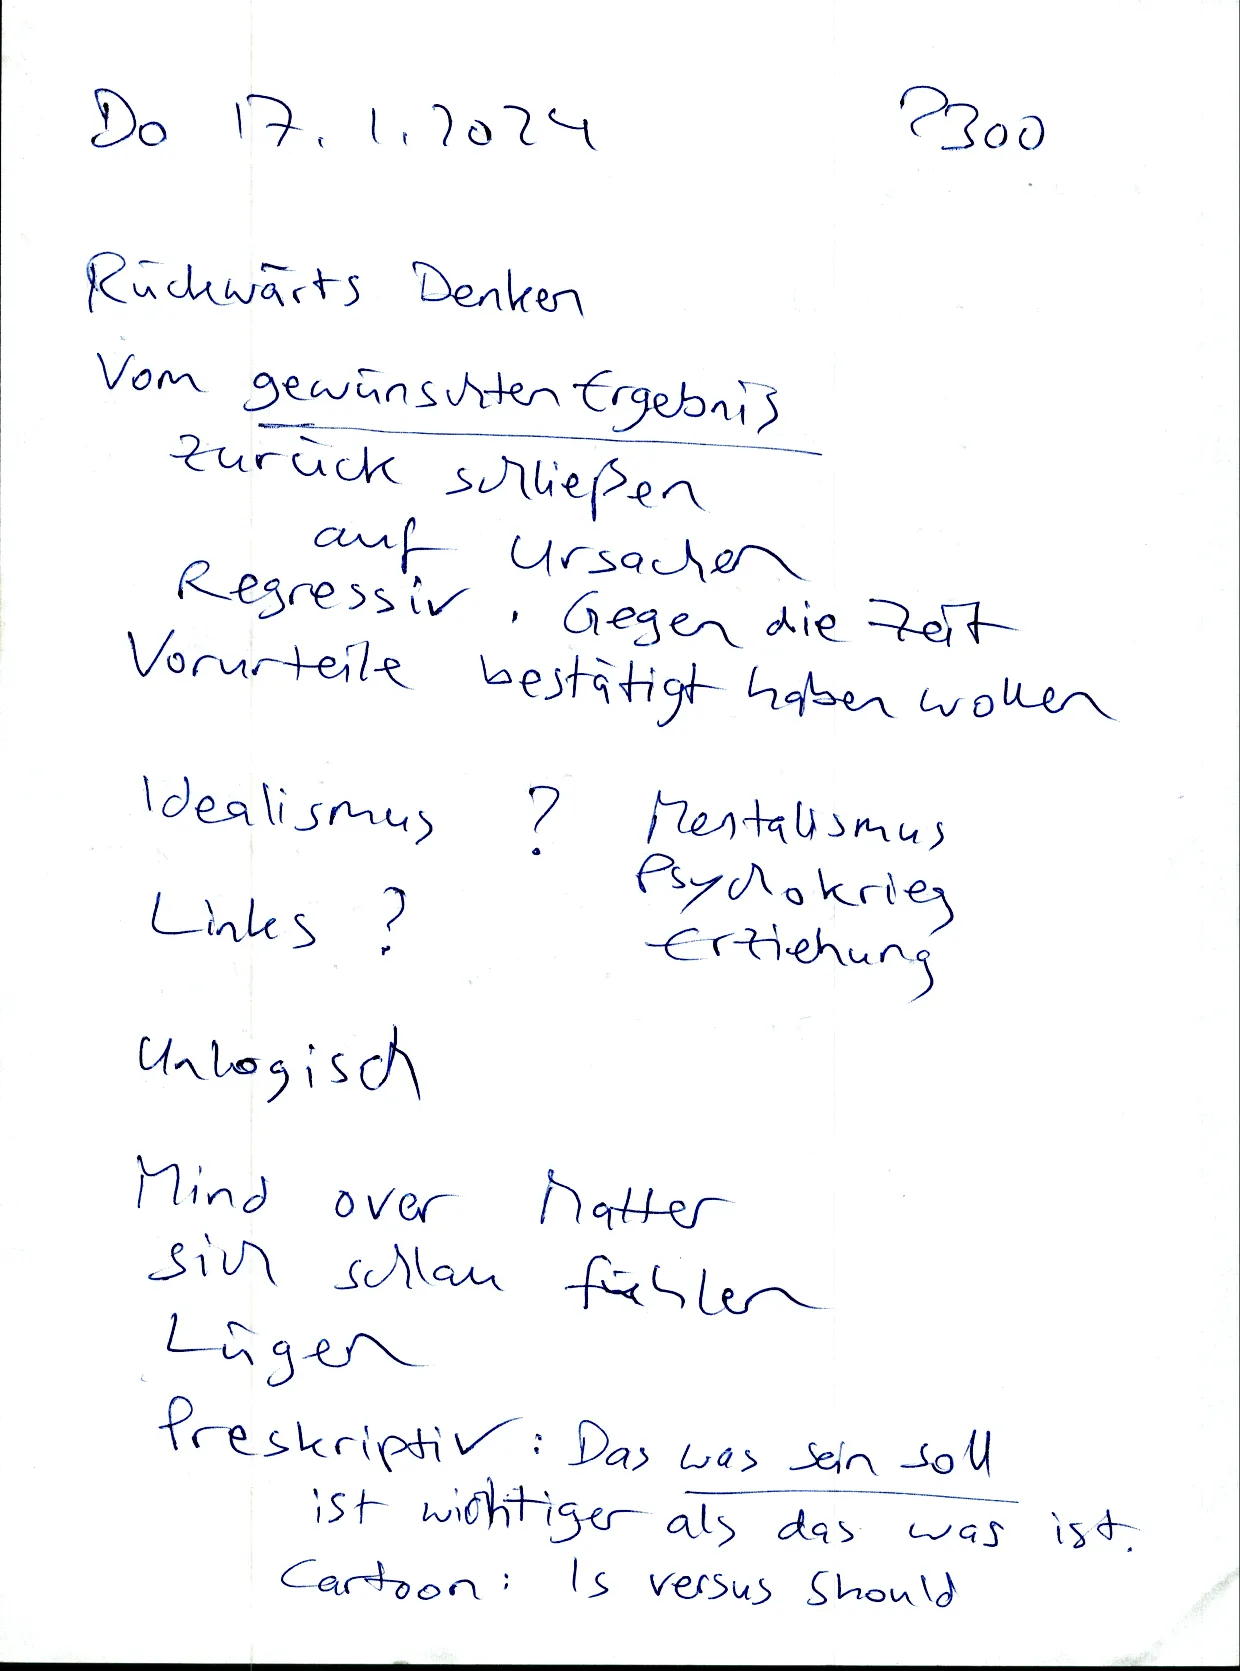 Do 17.1.2024 ?300
Rückwärts Denken
Vom gewünschten Ergebnis
zurück schließen
auf Ursachen
Regressiv, Gegen die Zeit
Vorurteile bestätigt haben wollen
Idealismus ? Mentalismus
Psychokrieg
Links ? Erziehung
Unlogisch
Mind over Matter
sich schlau fühlen
Lügen
Preskriptiv: Das was sein soll
ist wichtiger als das was ist.
Cartoon: Is versus Should